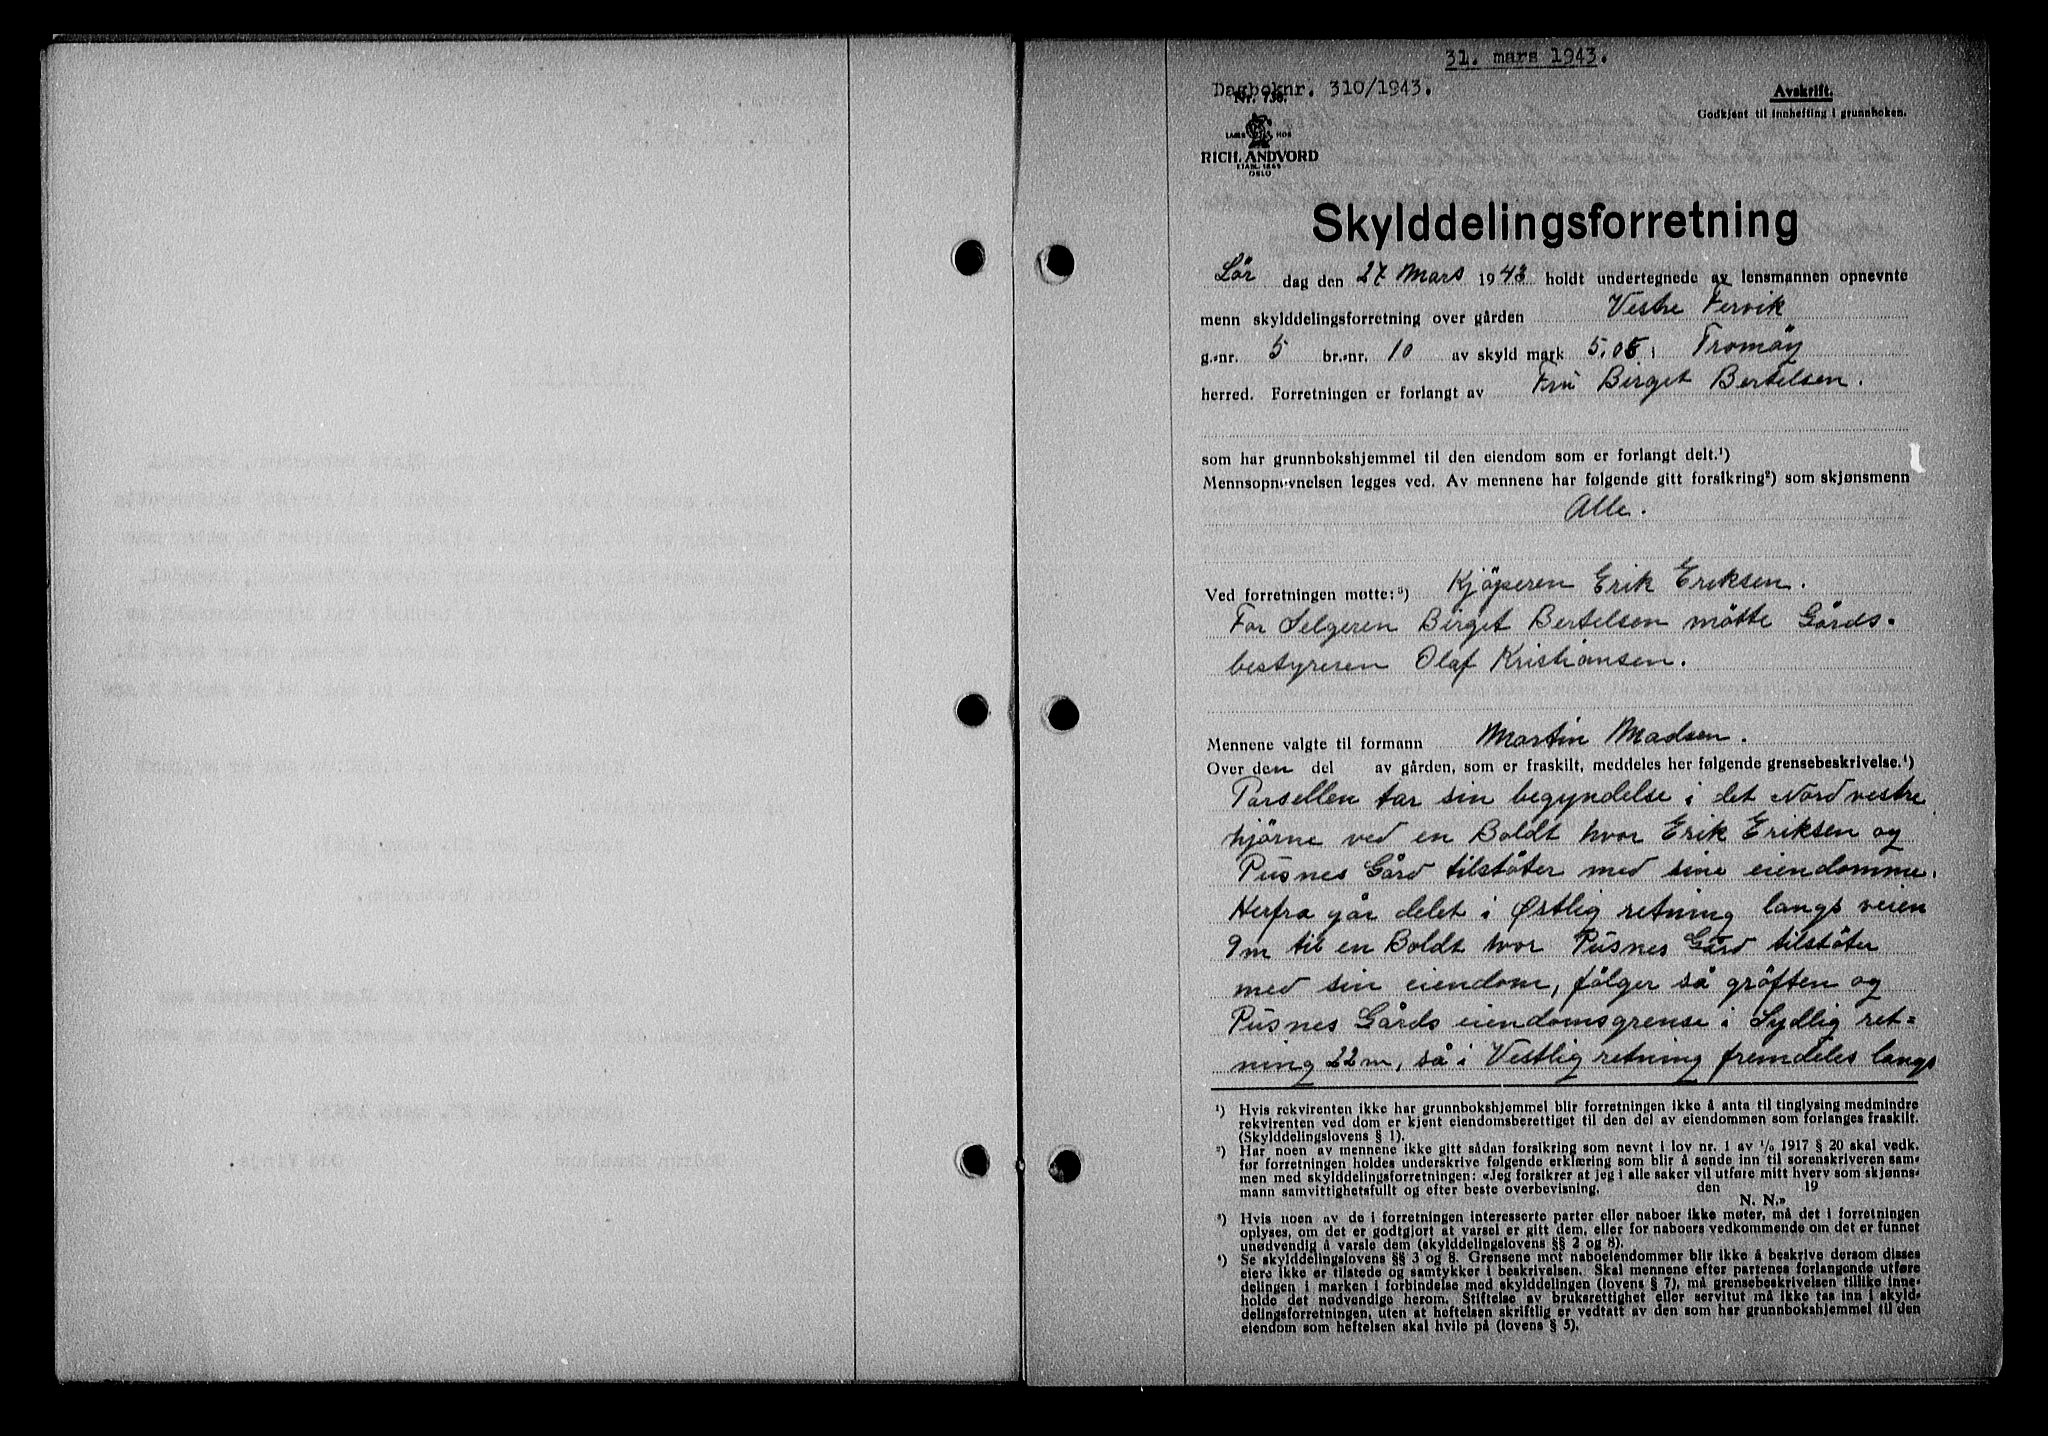 31. mars 1943.
Dagboknr. 310/1943.
Nr. 738.
Avskrift.
Godkjent til innhefting i grunnboken.
LAGER HOS
RICH. ANDVORD
ETABL. 1865
OSLO
Skylddelingsforretning
Lör dag den 27 Mars 1943 holdt undertegnede av lensmannen opnevnte
menn skylddelingsforretning over gården Vestre Fervik
g.-nr. 5 br.-nr. 10 av skyld mark 5.05 i Tromöy
herred. Forretningen er forlangt av Fru Birget Bertelsen.
som har grunnbokshjemmel til den eiendom som er forlangt delt.¹)
Mennsopnevnelsen legges ved. Av mennene har følgende gitt forsikring²) som skjønsmenn
Alle.
Ved forretningen møtte:³) Kjöperen Erik Eriksen.
For Selgeren Birget Bertelsen mötte Gårds-
bestyreren Olaf Kristiansen.
Mennene valgte til formann Martin Madsen.
Over den del av gården, som er fraskilt, meddeles her følgende grensebeskrivelse.⁴)
Parsellen tar sin begyndelse i det Nordvestre
hjörne ved en Boldt hvor Erik Eriksen og
Pusnes Gård tilstöter med sine eiendomme.
Herfra går delet i Østlig retning langs veien
9m til en Boldt hvor Pusnes Gård tilstöter
med sin eiendom, fölger så gröften og
Pusnes Gårds eiendomsgrense i Sydlig ret-
ning 22m, så i Vestlig retning fremdeles langs
¹) Hvis rekvirenten ikke har grunnbokshjemmel blir forretningen ikke å anta til tinglysing medmindre
rekvirenten ved dom er kjent eiendomsberettiget til den del av eiendommen som forlanges fraskilt.
(Skylddelingslovens § 1).
²) Har noen av mennene ikke gitt sådan forsikring som nevnt i lov nr. 1 av 1/6 1917 § 20 skal vedk.
før forretningen holdes underskrive følgende erklæring som blir å sende inn til sorenskriveren sam-
men med skylddelingsforretningen: «Jeg forsikrer at jeg i alle saker vil utføre mitt hverv som skjønns-
mann samvittighetsfullt og efter beste overbevisning. den 19
N. N.»
³) Hvis noen av de i forretningen interesserte parter eller naboer ikke møter, må det i forretningen
oplyses, om det er godtgjort at varsel er gitt dem, eller for naboers vedkommende om det er funnet
unødvendig å varsle dem (skylddelingslovens §§ 2 og 8).
⁴) Se skylddelingslovens §§ 3 og 8. Grensene mot naboeiendommer blir ikke å beskrive dersom disses
eiere ikke er tilstede og samtykker i beskrivelsen. Skal mennene efter partenes forlangende utføre
delingen i marken i forbindelse med skylddelingen (lovens § 7), må grensebeskrivelsen tillike inne-
holde det nødvendige herom. Stiftelse av bruksrettighet eller servitut må ikke tas inn i skyld-
delingsforretningen, uten at heftelsen skriftlig er vedtatt av den som har grunnbokshjemmel til den
eiendom som heftelsen skal hvile på (lovens § 5).